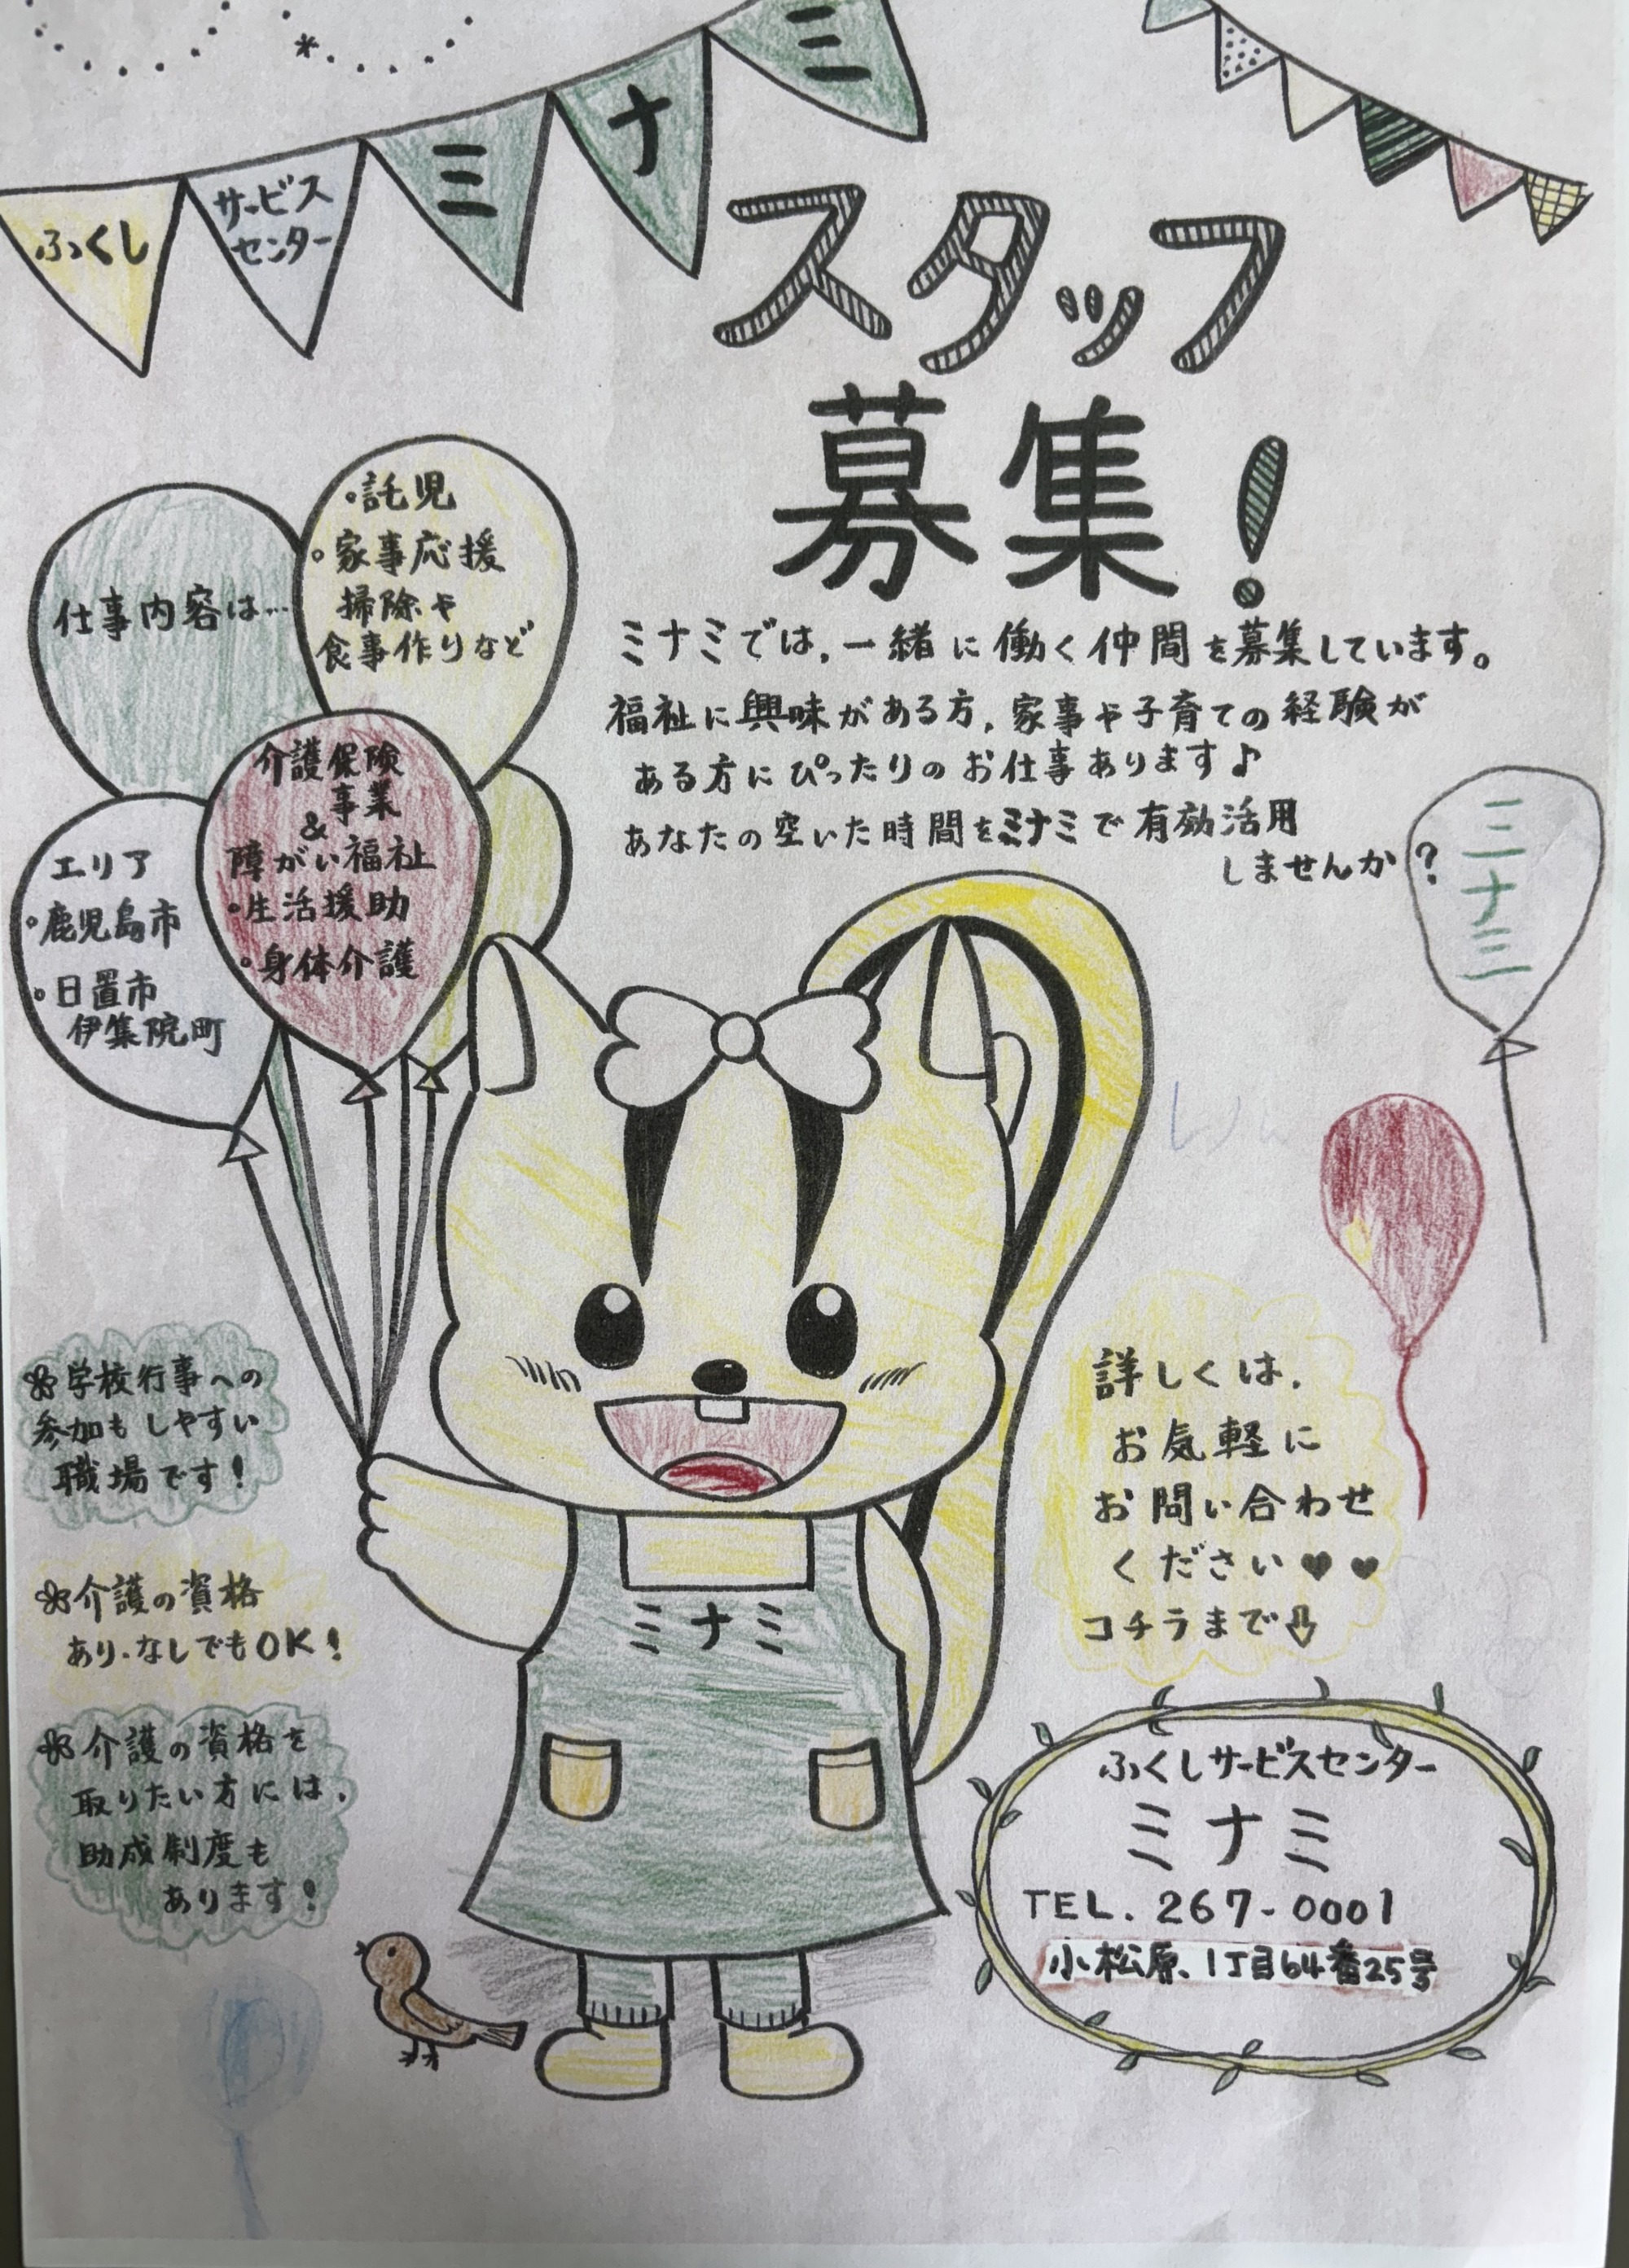 ふくし
サービス
センター
ミナミ
スタッフ
募集!
ミナミでは、一緒に働く仲間を募集しています。
福祉に興味がある方、家事や子育ての経験が
ある方にぴったりのお仕事あります♪
あなたの空いた時間をミナミで有効活用
しませんか?
仕事内容は…
・託児
・家事応援
掃除や
食事作りなど
介護保険
事業
&
障がい福祉
・生活援助
・身体介護
エリア
・鹿児島市
・日置市
伊集院町
ミナミ
学校行事への
参加もしやすい
職場です!
介護の資格
あり・なしでもOK!
介護の資格を
取りたい方には、
助成制度も
あります!
ミナミ
詳しくは、
お気軽に
お問い合わせ
ください♥♥
コチラまで⇩
ふくしサービスセンター
ミナミ
TEL. 267-0001
小松原、1丁目64番25号